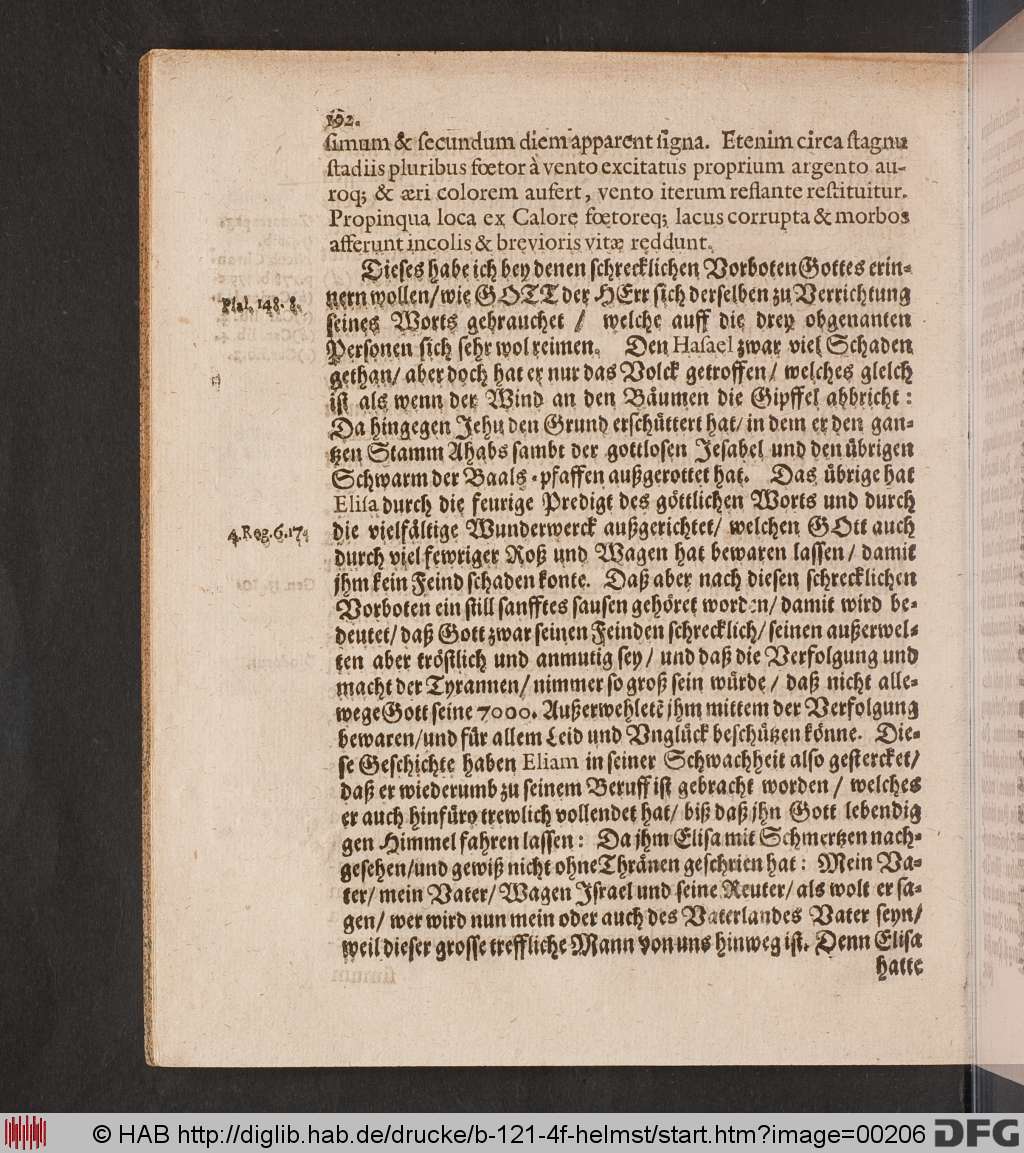 192.
simum & secundum diem apparent signa. Etenim circa stagnu
stadiis pluribus fœtor à vento excitatus proprium argento au-
roq; & æri colorem aufert, vento iterum reflante restituitur.
Propinqua loca ex Calore fœtoreq; lacus corrupta & morbos
afferunt incolis & brevioris vitæ reddunt.
Dieses habe ich bey denen schrecklichen Vorboten Gottes erin-
nern wollen/ wie GOTT der HErr sich derselben zu Verrichtung
Psal. 148. 8.
seines Worts gebrauchet / welche auff die drey obgenanten
Personen sich sehr wol reimen. Den Hasael zwar viel Schaden
gethan/ aber doch hat er nur das Volck getroffen/ welches gleich
ist als wenn der Wind an den Bäumen die Gipffel abbricht:
Da hingegen Jehu den Grund erschüttert hat/ in dem er den gan-
tzen Stamm Ahabs sambt der gottlosen Jesabel und den übrigen
Schwarm der Baals-pfaffen außgerottet hat. Das übrige hat
Elisa durch die feurige Predigt des göttlichen Worts und durch
die vielfältige Wunderwerck außgerichtet/ welchen GOtt auch
4. Reg. 6. 17.
durch viel fewriger Roß und Wagen hat bewaren lassen/ damit
jhm kein Feind schaden konte. Daß aber nach diesen schrecklichen
Vorboten ein still sanfftes sausen gehöret worden/ damit wird be-
deutet/ daß Gott zwar seinen Feinden schrecklich/ seinen außerwel-
ten aber tröstlich und anmutig sey/ und daß die Verfolgung und
macht der Tyrannen/ nimmer so groß sein würde/ daß nicht alle-
wege Gott seine 7000. Außerwehletẽ jhm mittem der Verfolgung
bewaren/ und für allem Leid und Vnglück beschützen könne. Die-
se Geschichte haben Eliam in seiner Schwachheit also gestercket/
daß er wiederumb zu seinem Beruff ist gebracht worden / welches
er auch hinfüro trewlich vollendet hat/ biß daß jhn Gott lebendig
gen Himmel fahren lassen: Da jhm Elisa mit Schmertzen nach-
gesehen/ und gewiß nicht ohne Thränen geschrien hat: Mein Va-
ter/ mein Vater/ Wagen Jsrael und seine Reuter/ als wolt er sa-
gen/ wer wird nun mein oder auch des Vaterlandes Vater seyn/
weil dieser grosse treffliche Mann von uns hinweg ist. Denn Elisa
hatte
© HAB http://diglib.hab.de/drucke/b-121-4f-helmst/start.htm?image=00206 DFG